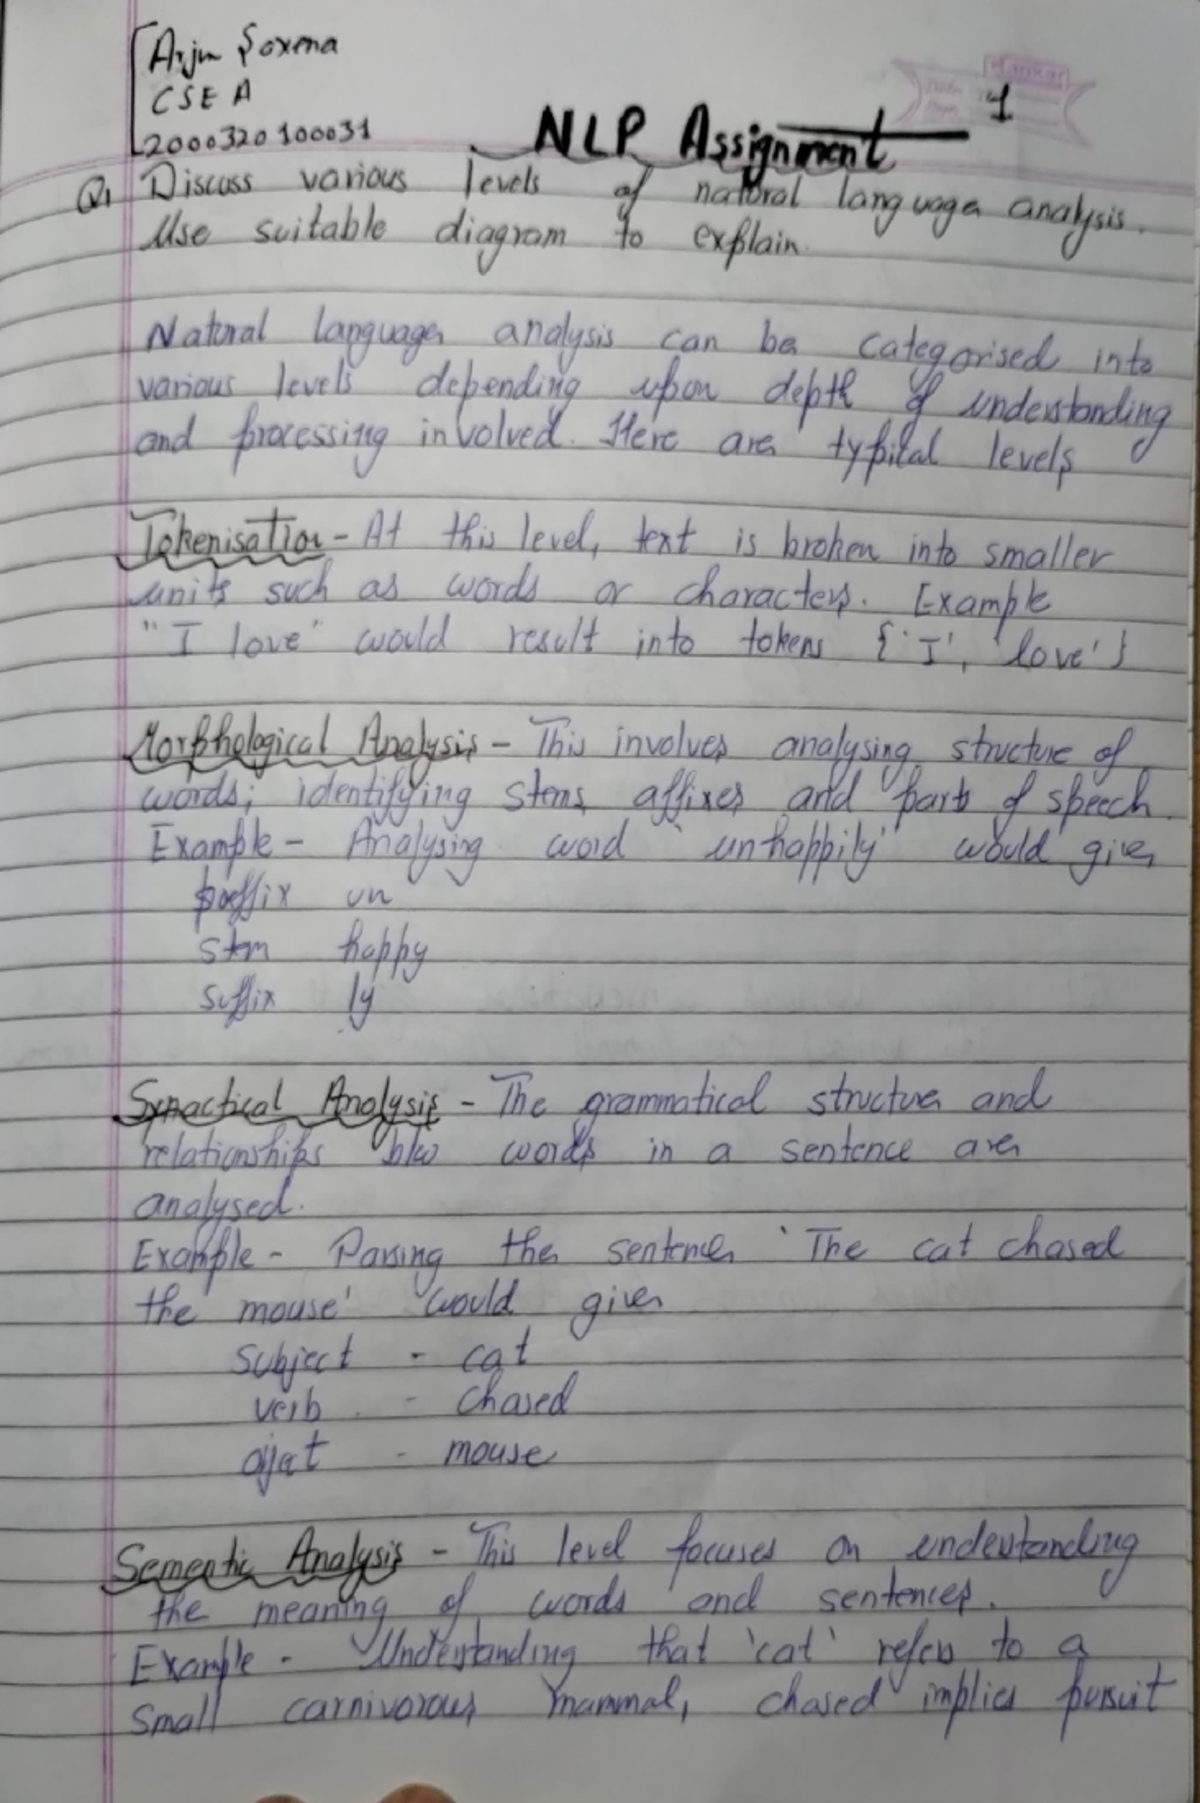 Arjun Saxena
CSE A
2000320100031
1
NLP Assignment
Q1 Discuss various levels of natural language analysis.
Use suitable diagram to explain.
Natural language analysis can be categorised into
various levels depending upon depth of understanding
and processing involved. Here are typical levels
Tokenisation - At this level, text is broken into smaller
units such as words or characters. Example
"I love" would result into tokens {'I', 'love'}
Morphological Analysis - This involves analysing structure of
words; identifying stems, affixes and parts of speech.
Example - Analysing word 'unhappily' would give
prefix un
stem happy
suffix ly
Synactical Analysis - The grammatical structure and
relationships b/w words in a sentence are
analysed.
Example - Parsing the sentence 'The cat chased
the mouse' would give
subject - cat
verb - chased
object - mouse
Sementic Analysis - This level focuses on understanding
the meaning of words and sentences.
Example - Understanding that 'cat' refers to a
small carnivorous mammal, chased implies pursuit